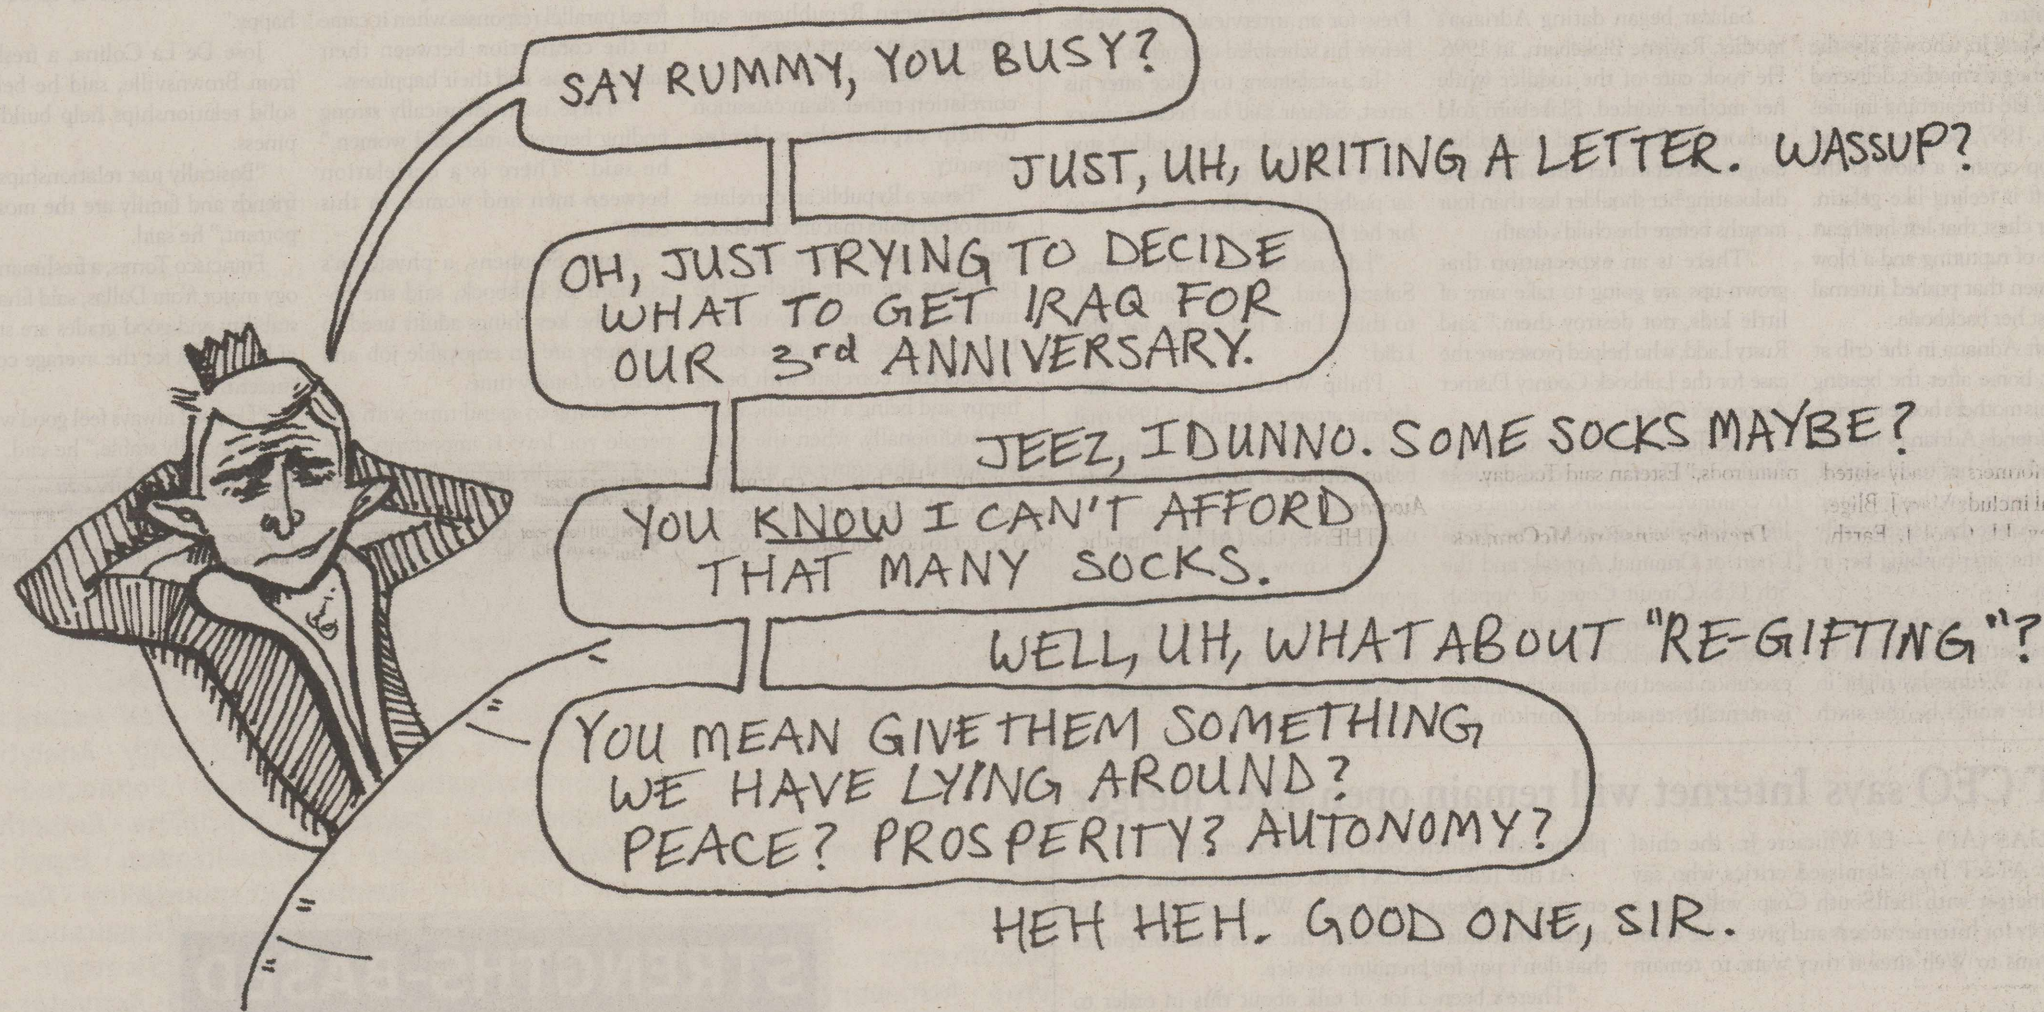 SAY RUMMY, YOU BUSY?
JUST, UH, WRITING A LETTER. WASSUP?
OH, JUST TRYING TO DECIDE
WHAT TO GET IRAQ FOR
OUR 3rd ANNIVERSARY.
JEEZ, I DUNNO. SOME SOCKS MAYBE?
YOU KNOW I CAN'T AFFORD
THAT MANY SOCKS.
WELL, UH, WHAT ABOUT "RE-GIFTING"?
YOU MEAN GIVE THEM SOMETHING
WE HAVE LYING AROUND?
PEACE? PROSPERITY? AUTONOMY?
HEH HEH. GOOD ONE, SIR.